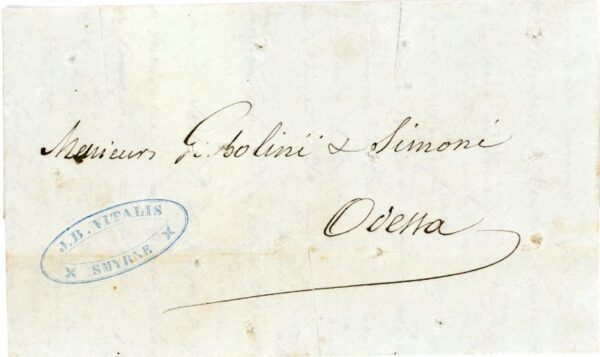 Messieurs G. Bolini & Simoni
Odessa
J.B. VITALIS
SMYRNE